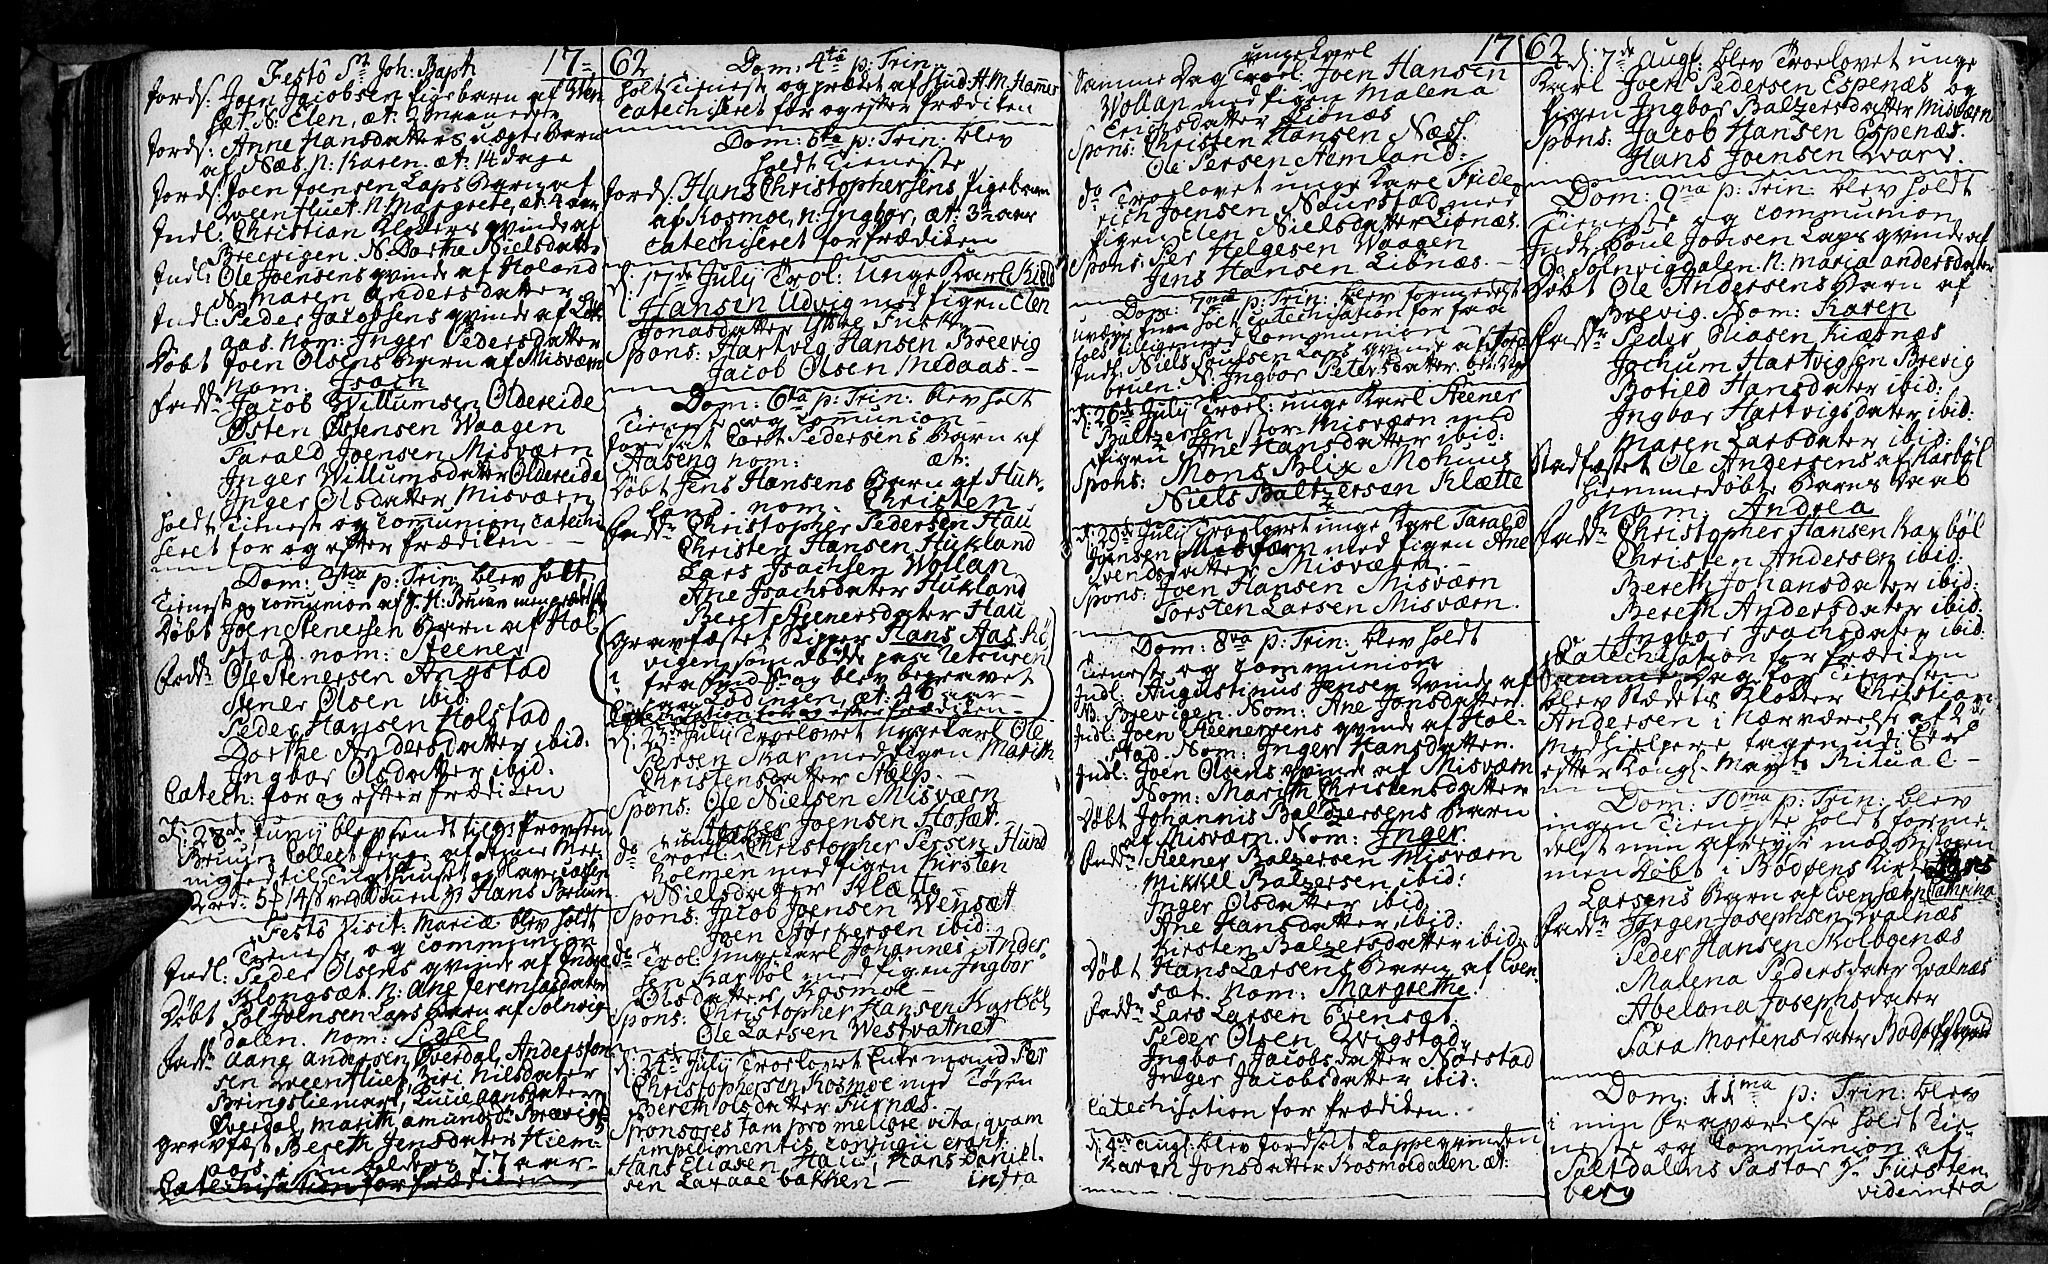 17 62
Festô St Joh: Baph
Jords: Joen Jacobsen Pigebarn af Sten
sæt N: Elen, æt: 2 maaneder
Jords: Anne Hansdatters uægte Barn
af Næs. n: Karen. æt: 14 dage
Jords: Joen Joensen Laps Barn af
n: Margrete, æt: 4 aar
Indl: Christian Klokers qvinde af
Breevigen. N. Dorthe Nielsdatter
Indl: Ole Joensens qvinde af Holand
N. Maren Andersdatter
Indl: Peder Jacobsens qvinde af
aas nom: Inger Pedersdatter
Døbt Joen Olsens Barn af Misværn
nom: Isach
Fadd: Jacob Willumsen Oldereide
Østen Østensen Waagen
Tarald Joensen Misværn
Inger Willumsdatter Oldereide
Inger Olsdatter Misværn
holdt Tieneste og Communion, Catechi
seret for og efter Prædiken
Dom: 3tia p: Trin: blev holt
Tieneste og Communion af H: Bruun
Døbt Joen Stenersen Barn af Hol
stad. nom: Steener
Fadd: Ole Stenersen Angstad
Stener Olsen ibid:
Peder Hansen Holstad
Dorthe Andersdatter ibid:
Ingbor Olsdatter ibid:
Catech: for og efter Prædiken
d: 28de Juny blev sendt til Hr Provsten
Bruun Collect
til og Havricossen
5 14 ved Hans Bruun
Festô Visit: Mariæ blev holdt
Tieneste og Communion
Indl: Peder Olsens qvinde af
Klongsæt. n: Ane Jeremiasdater
Døbt Pol Joensen Laps Barn af Solvig
dalen. nom:
Fadd: Aane Andersen Overdal, Anders
sen Biri Nilsdater
Overdal, Marith Amundsd: Brevig
gravfæst Bereth Jensdater Hiem
aas. 77 aar
Catechisation for Prædiken
Dom: 4ta p: Trin:
holt Tieneste og prædket af Stud: H M Hamer
Catechiseret for og efter Prædiken
Dom: 5ta p: Trin: blev
holdt Tieneste
Jords: Hans Christophersens Pigebarn
af Kosmoe, n: Ingbor, æt: 3½ aar
Catechiseret for Prædiken
d: 17de July Trol: Unge Karl Kield
Hansen Udvig med Pigen Elen
Jonasdatter
Spons: Hartvig Hansen Breevig
Jacob Olsen Medaas.
Dom: 6ta p: Trin: blev holt
Tieneste og Communion
Jordsat Pedersens Barn af
Aaseng nom: æt:
Døbt Jens Hansens Barn af Huk
land. nom: Christen
Fadd: Christopher Pedersen Hau
Christen Hansen Hukland
Lars Isachsen Wollan
Ane Isachsdater Hukland
Beret Steenersdater Hau
Gravfæstet Skipper Hans Aas
vigen, som døde paa Utreisen
fra og blev begravet
paa Lødingen, æt: 46 aar
Catechisation for og efter Prædiken
d: 23de July Troelovet Ungekarl Ole
Persen Skar med Pigen Marith
Christensdatter Stolp.
Spons: Ole Nielsen Misværn
Joensen Hosæt
do Troel: ungekarl Christopher Persen Hund
holmen med Pigen Kirsten
Nielsdatter Klætte
Spons: Jacob Joensen Wensæt
Joen ibid:
do Trol: ungekarl Johannes Ander
sen Karbøl med Pigen Ingbor
Olsdatter Kosmoe
Spons: Christopher Hansen Karbøl
Ole Larsen Westvatnet
July Troelovet Enkemand Per
Christophersen Kosmoe med Tøsen
Bereth Olsdatter Furnæs.
Sponsores tam pro meliore vita, quam
impedimentis conjugii erant
Hans Eliasen Hau, Hans Daniel
sen bakken — infra
17 62
ungekarl
Samme Dag Troel: Joen Hansen
Wollan med Pigen Malena
Erichsdatter Libnæs
Spons: Christen Hansen Næss.
Ole Persen Aamland:
do Troelovet unge Karl Fride
rich Joensen Naurstad med
Pigen Elen Nielsdatter Libnæs.
Spons: Per Helgesen Waagen
Jens Hansen Libnæs.
Dom: 7ma p: Trin: blev formedelst
holt Catechisation for faa
folk tilligemed Communion
Indl: Niels Poulsen Laps qvinde af
bruen. N: Ingbor Petersdatter
d: 26de July Troel: unge Karl Steener
Baltzersen stor-Misværn med
Pigen Ane Hansdatter ibid:
Spons: Mons Blix Mohuus
Niels Baltzersen Klætte
d: 29de July Troelovet unge Karl Tarald
Jensen Misværn med Pigen Ane
Svendsdatter Misværn.
Spons: Joen Hansen Misværn
Torsten Larsen Misværn.
Dom: 8va p: Trin: blev holdt
Tieneste og Communion
Indl: Augustinus Jensen qvinde af
N. Brevigen. Nom: Ane Jonsdatter.
Indl: Joen Steenersens qvinde af Hol-
stad. Nom: Inger Hansdatter.
Indl: Joen Olsens qvinde af Misværn
Nom: Marith Christensdatter
Døbt Johannis Baltzersens Barn
af Misværn. Nom: Inger.
Fadd: Steener Balzersen Misværn
Mikkel Balzersen ibid:
Inger Olsdatter ibid
Ane Hansdatter, ibid:
Kirsten Balzersdatter ibid:
Døbt Hans Larsens Barn af Even
sæt. nom: Margrethe.
Fadd: Lars Larsen Evensæt.
Peder Olsen Qvigstad
Ingbor Jacobsdatter Nørstad
Inger Jacobsdatter ibid:
Catechisation for Prædiken.
d: 4de Aug: blev Jordsat Lappeqvinden
Karen Jonsdatter Kosmoldalen æt:
d: 7de Augt: blev Troelovet unge
Karl Joen Pedersen Espenæs og
Pigen Ingbor Balzersdatter Misværn
Spons: Jacob Hansen Espenæs.
Hans Joensen Qvarv.
Dom: 9na p: Trin: blev holdt
Tieneste og Communion
Indl: Poul Jonsen Laps qvinde af
Solvigdalen. N: Maria Andersdater
Døbt Ole Andersens Barn af
Brevig. Nom: Karen
Fadd: Peder Eliasen Kiærnæs
Jochum Hartvigsen Brevig
Botild Hansdater ibid:
Ingbor Hartvigsdater ibid:
Maren Larsdater ibid:
Stadfæstet Ole Andersens af Karbøl
hiemmedøbte Barns Daab
nom: Andrea
Fadd: Christopher Hansen Karbøl
Christen Andersen ibid:
Bereth Johansdater ibid:
Bereth Andersdater ibid:
Ingbor Isachsdater ibid:
Catechisation for Prædiken
Samme Dag for Tienesten
blev Stædets Kloker Christian
Andersen i nærværelse af 2de
Medhielpere tagen udi Eed
efter Kongl: Mayts Ritual —
Dom: 10ma p: Trin: blev
ingen Tieneste holdt forme
delst min afreyse mod Bispen
men Døbt i Bodøens Kirke
Larsens Barn af Evensæt n: Cathrina
Fadd: Jørgen Josephsen Qvalnæs
Peder Hansen Skolbgenæs
Malena Pedersdater Qvalnæs
Abelona Josephsdater
Sara Mortensdater Bodøegaard
Dom: 11ma p: Trin: blev
i min fraværelse holdt Tie-
neste og Communion af
Saltdalens Pastor Hr Fürsten
berg vide infra